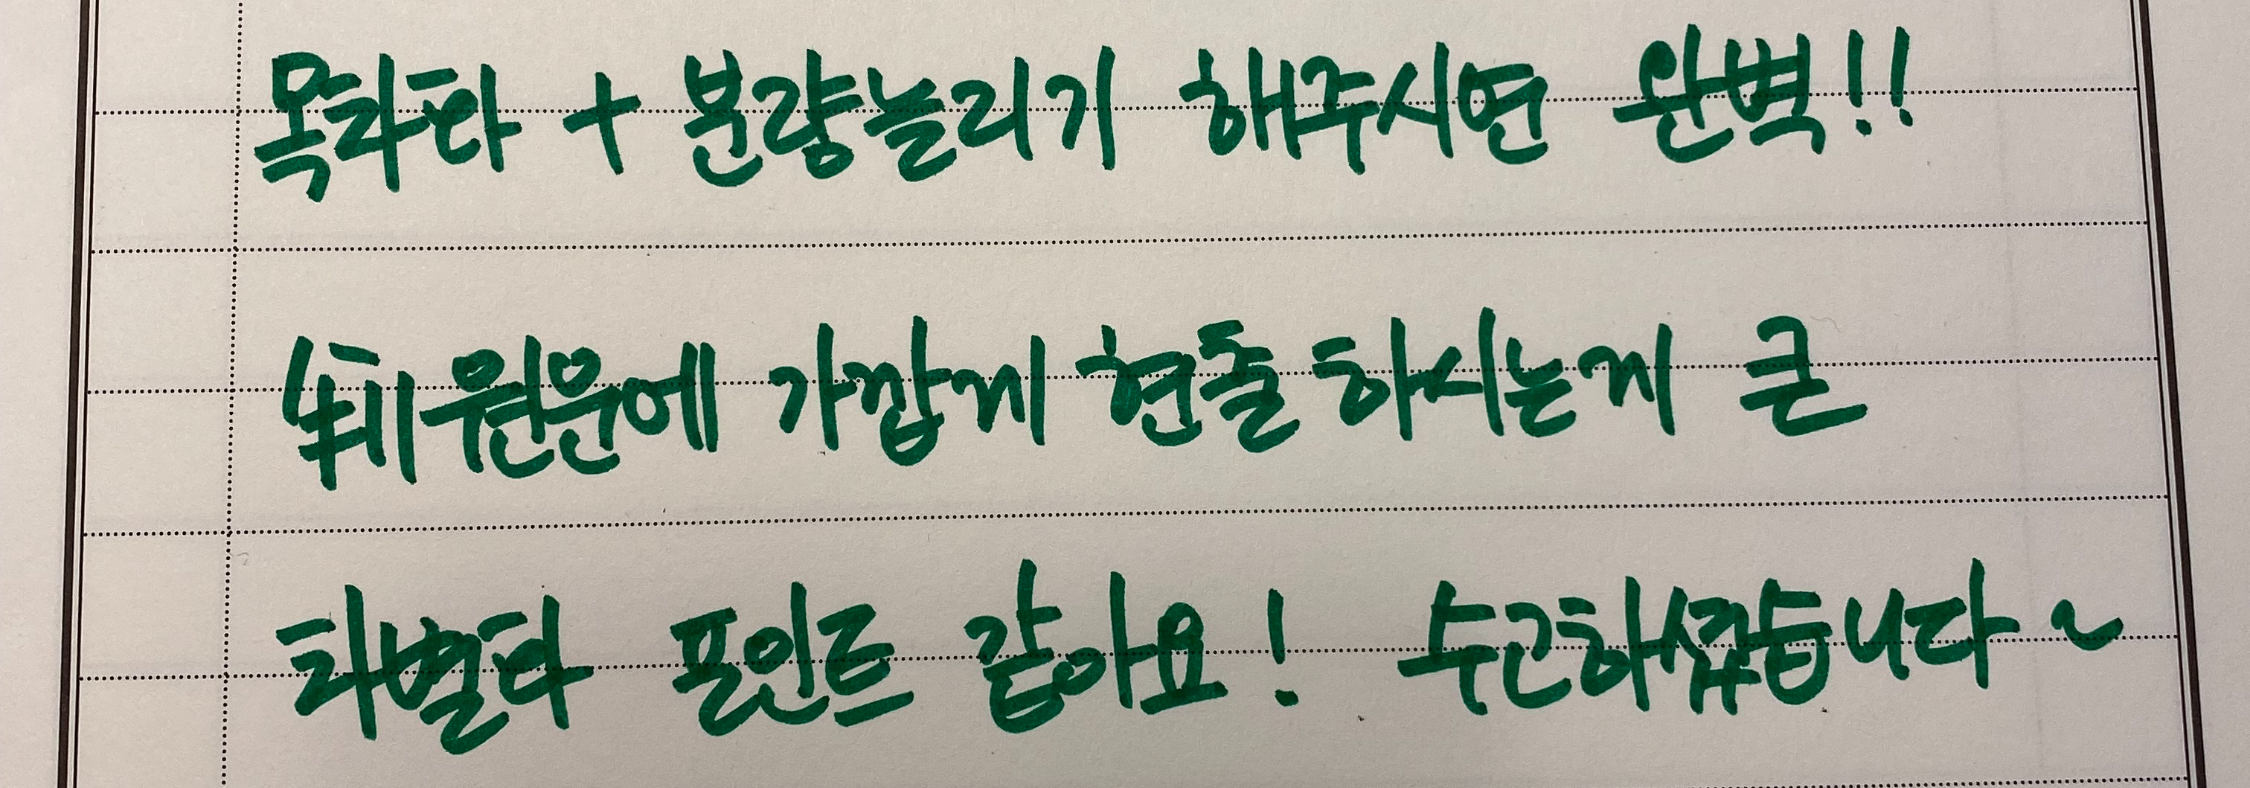 목차화 + 분량늘리기 해주시면 완벽!!
원문에 가깝게 현출하시는게 큰
차별화 포인트 같아요! 수고하셨습니다~